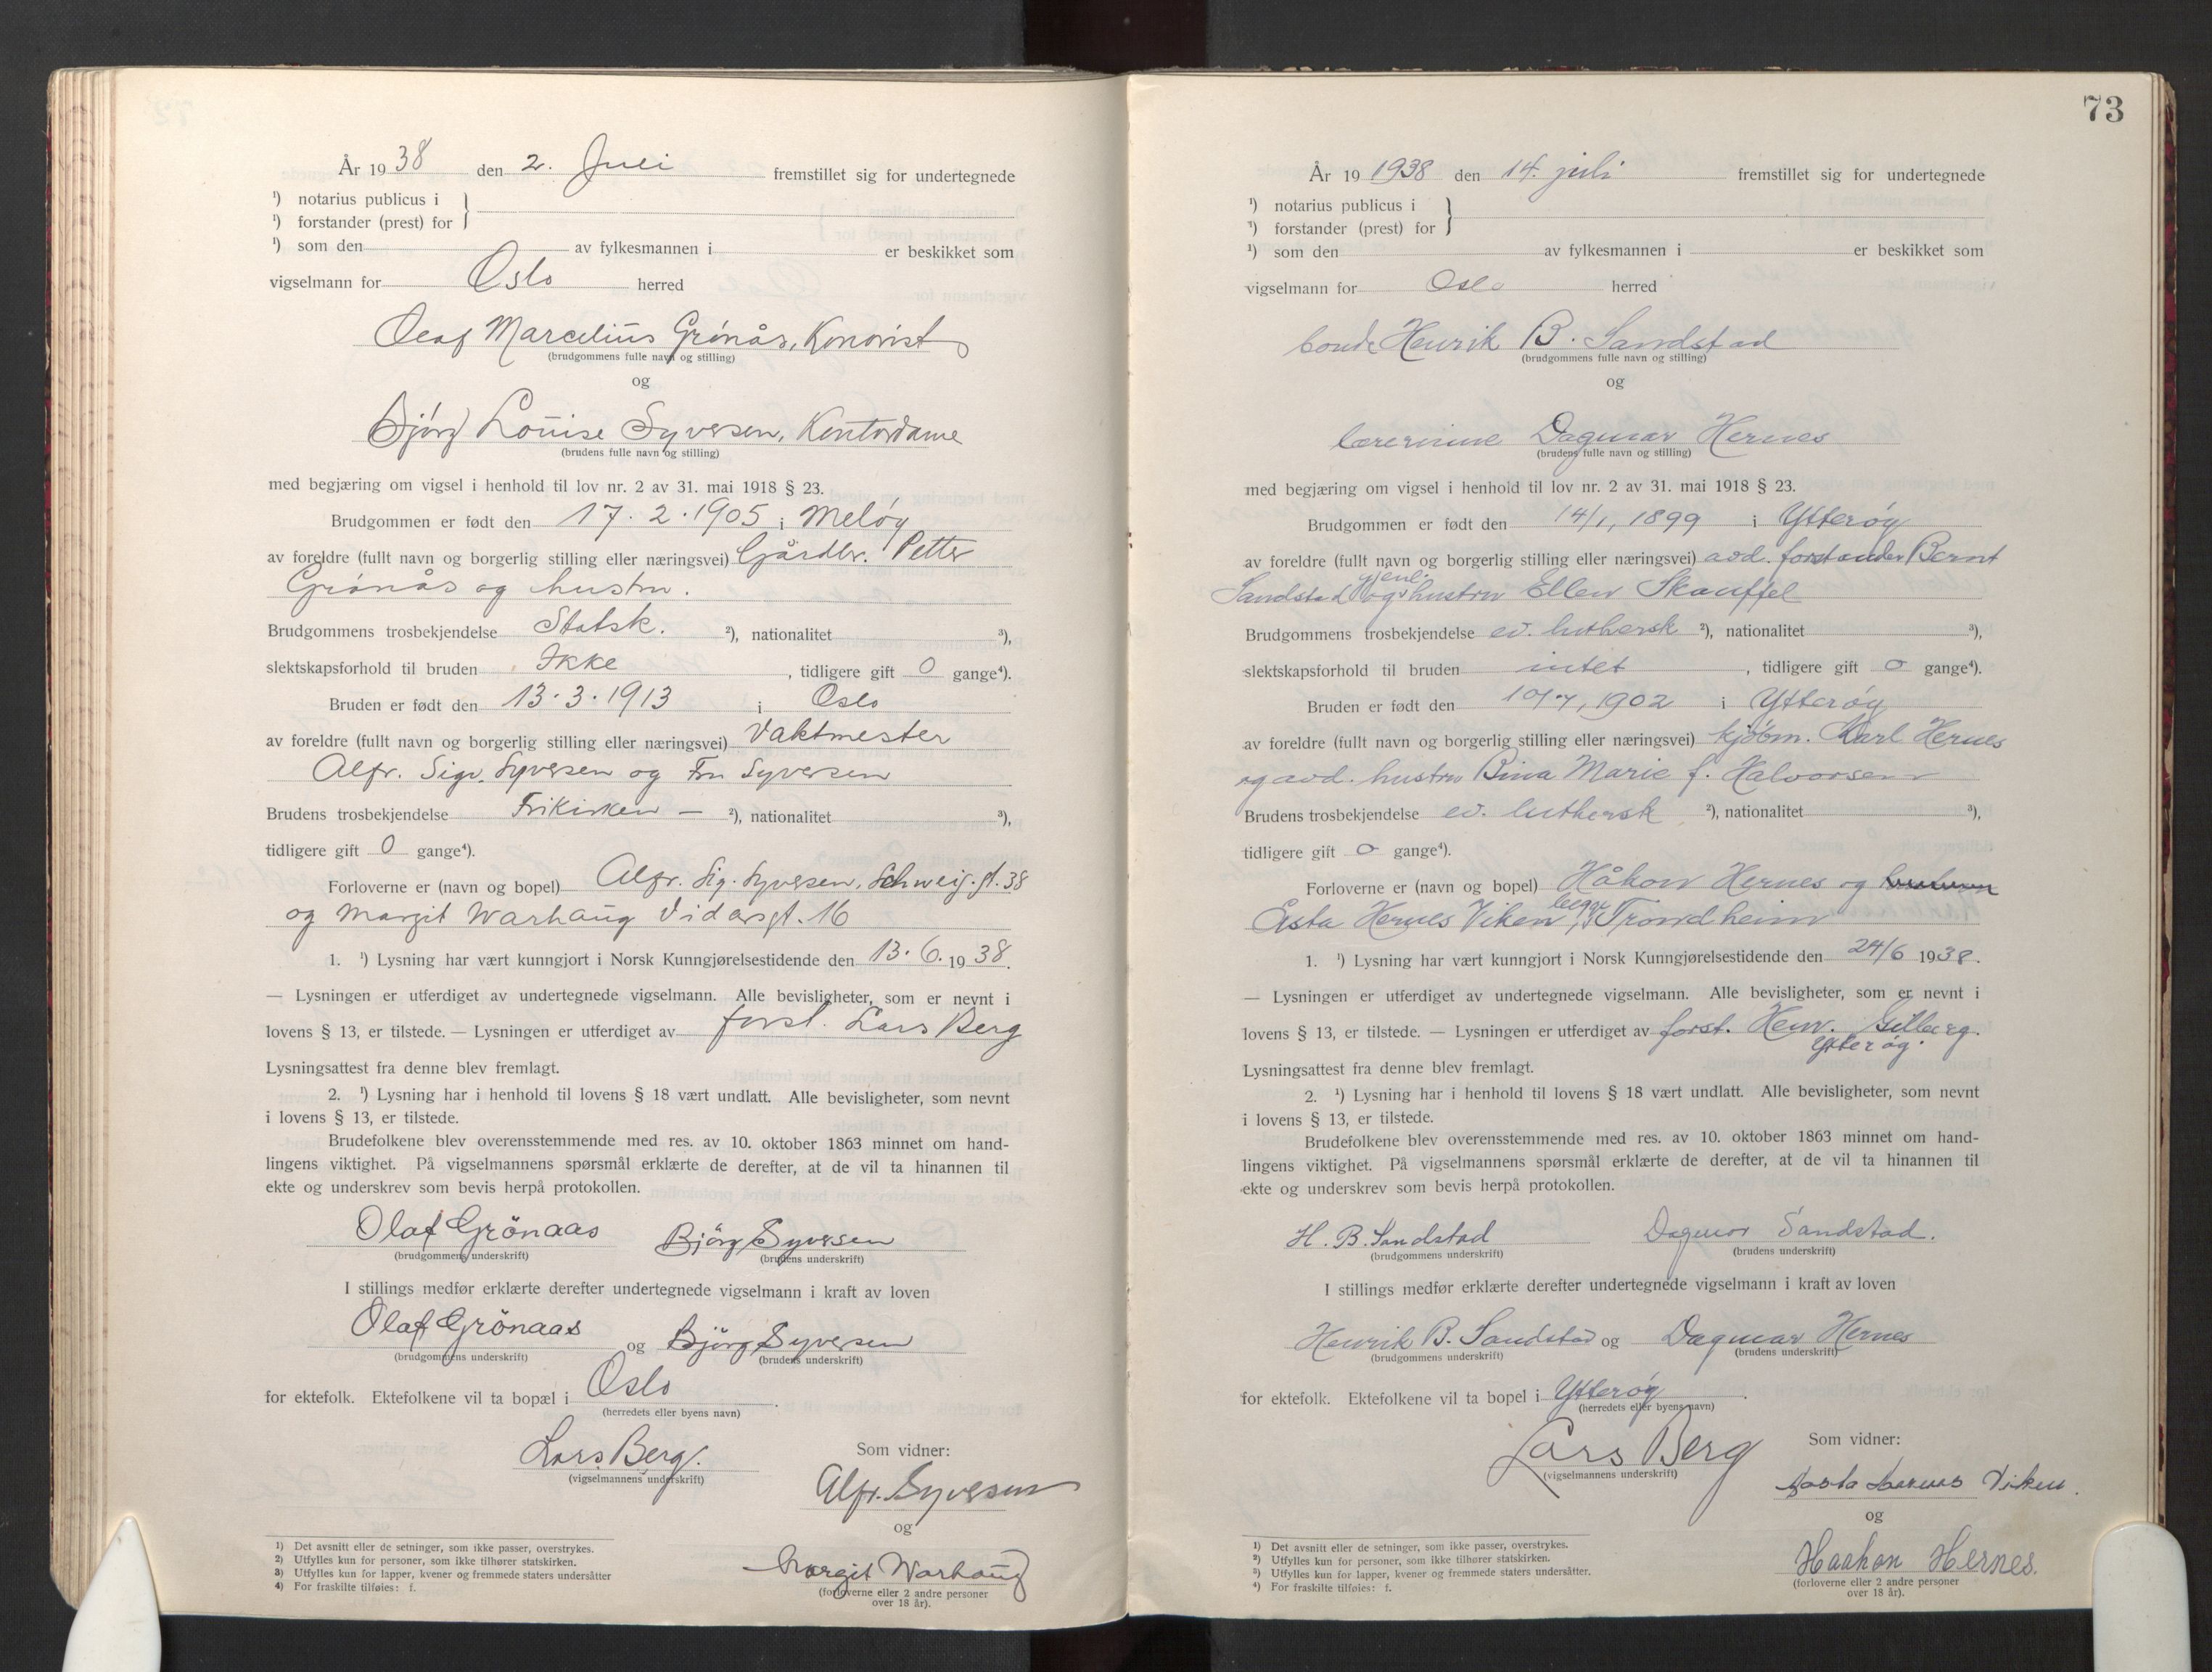 År 1938 den 2. Juli fremstillet sig for undertegnede
¹) notarius publicus i
¹) forstander (prest) for
¹) som den av fylkesmannen i er beskikket som
vigselmann for Oslo herred
Olaf Marcelius Grønås, Kononist
(brudgommens fulle navn og stilling)
og
Bjørg Louise Syversen, Kontordame
(brudens fulle navn og stilling)
med begjæring om vigsel i henhold til lov nr. 2 av 31. mai 1918 § 23.
Brudgommen er født den 17.2.1905 i Meløy
av foreldre (fullt navn og borgerlig stilling eller næringsvei) Gårdbr. Petter
Grønås og hustru.
Brudgommens trosbekjendelse Statsk. ²), nationalitet ³),
slektskapsforhold til bruden Ikke, tidligere gift 0 gange⁴).
Bruden er født den 13.3.1913 i Oslo
av foreldre (fullt navn og borgerlig stilling eller næringsvei) Vaktmester
Alfr. Sigv. Syversen og Fru Syversen
Brudens trosbekjendelse Frikirken — ²), nationalitet ³),
tidligere gift 0 gange⁴).
Forloverne er (navn og bopel) Alfr. Sig. Syversen, Schweig. gt. 38
og Margit Warhaug Vidarsgt. 16
1. ¹) Lysning har vært kunngjort i Norsk Kunngjørelsestidende den 13.6.1938.
— Lysningen er utferdiget av undertegnede vigselmann. Alle bevisligheter, som er nevnt i
lovens § 13, er tilstede. — Lysningen er utferdiget av forst. Lars Berg
Lysningsattest fra denne blev fremlagt.
2. ¹) Lysning har i henhold til lovens § 18 vært undlatt. Alle bevisligheter, som nevnt
i lovens § 13, er tilstede.
Brudefolkene blev overensstemmende med res. av 10. oktober 1863 minnet om hand-
lingens viktighet. På vigselmannens spørsmål erklærte de derefter, at de vil ta hinannen til
ekte og underskrev som bevis herpå protokollen.
Olaf Grönaas Björg Syversen
(brudgommens underskrift) (brudens underskrift)
I stillings medfør erklærte derefter undertegnede vigselmann i kraft av loven
Olaf Grönaas og Björg Syversen
(brudgommens underskrift) (brudens underskrift)
for ektefolk. Ektefolkene vil ta bopæl i Oslo.
(herredets eller byens navn)
Lars Berg.
(vigselmannens underskrift)
Som vidner:
Alfr. Syversen
og
Margit Warhaug
(forloverne eller 2 andre personer
over 18 år).
1) Det avsnitt eller de setninger, som ikke passer, overstrykes.
2) Utfylles kun for personer, som ikke tilhører statskirken.
3) Utfylles kun for lapper, kvener og fremmede staters undersåtter
4) For fraskilte tilføies: f.
73
År 19 1938 den 14. juli fremstillet sig for undertegnede
¹) notarius publicus i
¹) forstander (prest) for
¹) som den av fylkesmannen i er beskikket som
vigselmann for Oslo herred
bonde Henrik B. Sandstad
(brudgommens fulle navn og stilling)
og
lærerinne Dagmar Hernes
(brudens fulle navn og stilling)
med begjæring om vigsel i henhold til lov nr. 2 av 31. mai 1918 § 23.
Brudgommen er født den 14/1, 1899 i Ytterøy
av foreldre (fullt navn og borgerlig stilling eller næringsvei) avd. forstander Bernt
Sandstad og gjenl. hustru Ellen Skauffel
Brudgommens trosbekjendelse ev. luthersk ²), nationalitet ³),
slektskapsforhold til bruden intet, tidligere gift 0 gange⁴).
Bruden er født den 10/7, 1902 i Ytterøy
av foreldre (fullt navn og borgerlig stilling eller næringsvei) kjøbm. Karl Hernes
og avd. hustru Bina Marie f. Halvorsen
Brudens trosbekjendelse ev. luthersk ²), nationalitet ³),
tidligere gift 0 gange⁴).
Forloverne er (navn og bopel) Håkon Hernes og
Asta Hernes Viken, begge Trondheim
1. ¹) Lysning har vært kunngjort i Norsk Kunngjørelsestidende den 24/6 1938.
— Lysningen er utferdiget av undertegnede vigselmann. Alle bevisligheter, som er nevnt i
lovens § 13, er tilstede. — Lysningen er utferdiget av forst. Henr. Gilberg.
Ytterøy.
Lysningsattest fra denne blev fremlagt.
2. ¹) Lysning har i henhold til lovens § 18 vært undlatt. Alle bevisligheter, som nevnt
i lovens § 13, er tilstede.
Brudefolkene blev overensstemmende med res. av 10. oktober 1863 minnet om hand-
lingens viktighet. På vigselmannens spørsmål erklærte de derefter, at de vil ta hinannen til
ekte og underskrev som bevis herpå protokollen.
H. B. Sandstad Dagmar Sandstad.
(brudgommens underskrift) (brudens underskrift)
I stillings medfør erklærte derefter undertegnede vigselmann i kraft av loven
Henrik B. Sandstad og Dagmar Hernes
(brudgommens underskrift) (brudens underskrift)
for ektefolk. Ektefolkene vil ta bopel i Ytterøy.
(herredets eller byens navn)
Lars Berg
(vigselmannens underskrift)
Som vidner:
Aasta Hernes Viken.
og
Haakon Hernes.
(forloverne eller 2 andre personer
over 18 år).
1) Det avsnitt eller de setninger, som ikke passer, overstrykes.
2) Utfylles kun for personer, som ikke tilhører statskirken.
3) Utfylles kun for lapper, kvener og fremmede staters undersåtter.
4) For fraskilte tilføies: f.